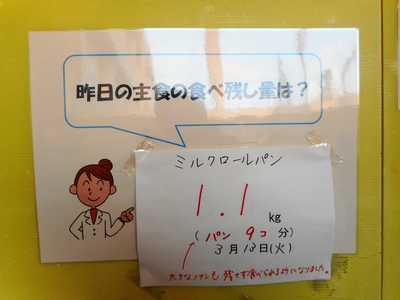 昨日の主食の食べ残し量は？
ミルクロールパン
1.1 kg
(パン 9コ 分)
3月13日(火)
大きなパンも残さず食べられるようになりました。